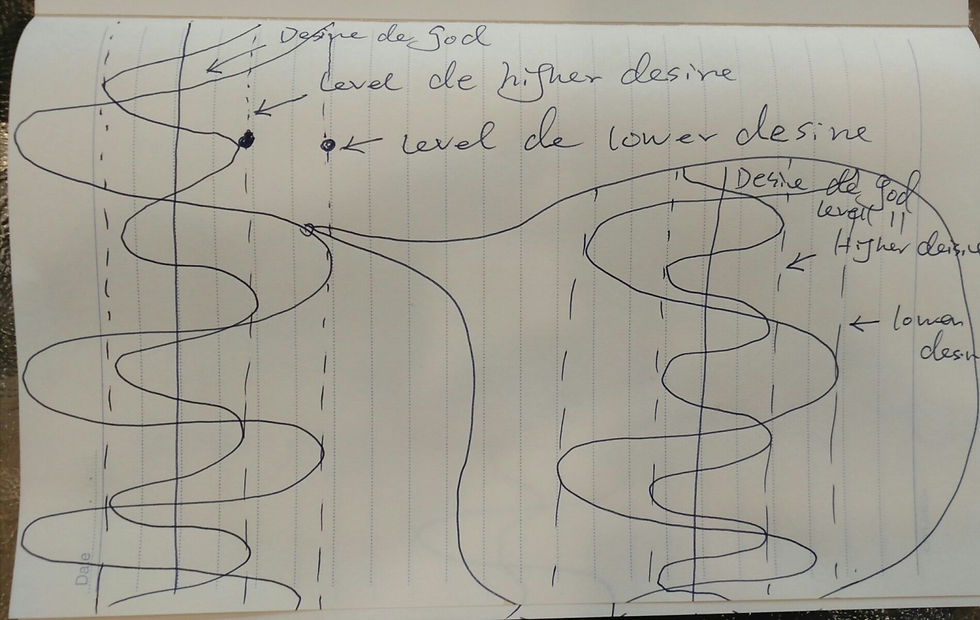 Desire de god
Level de higher desire
Level de lower desire
Desire de god
level II
Higher desire
lower
desir
Date